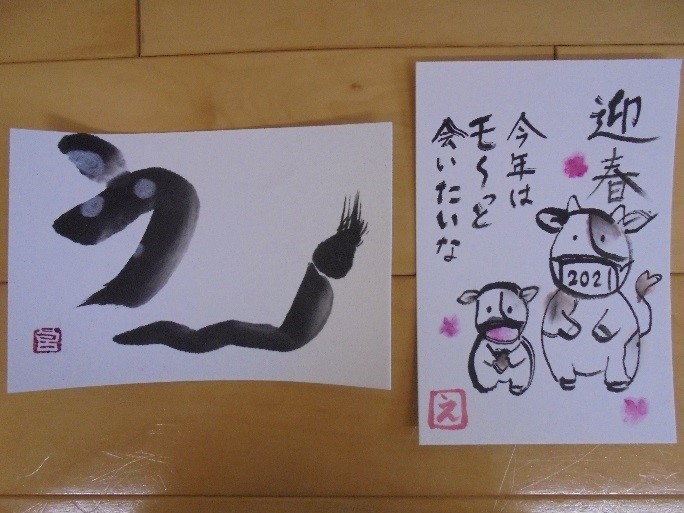 うし
迎春
今年は
モ〜っと
会いたいな
2021
え